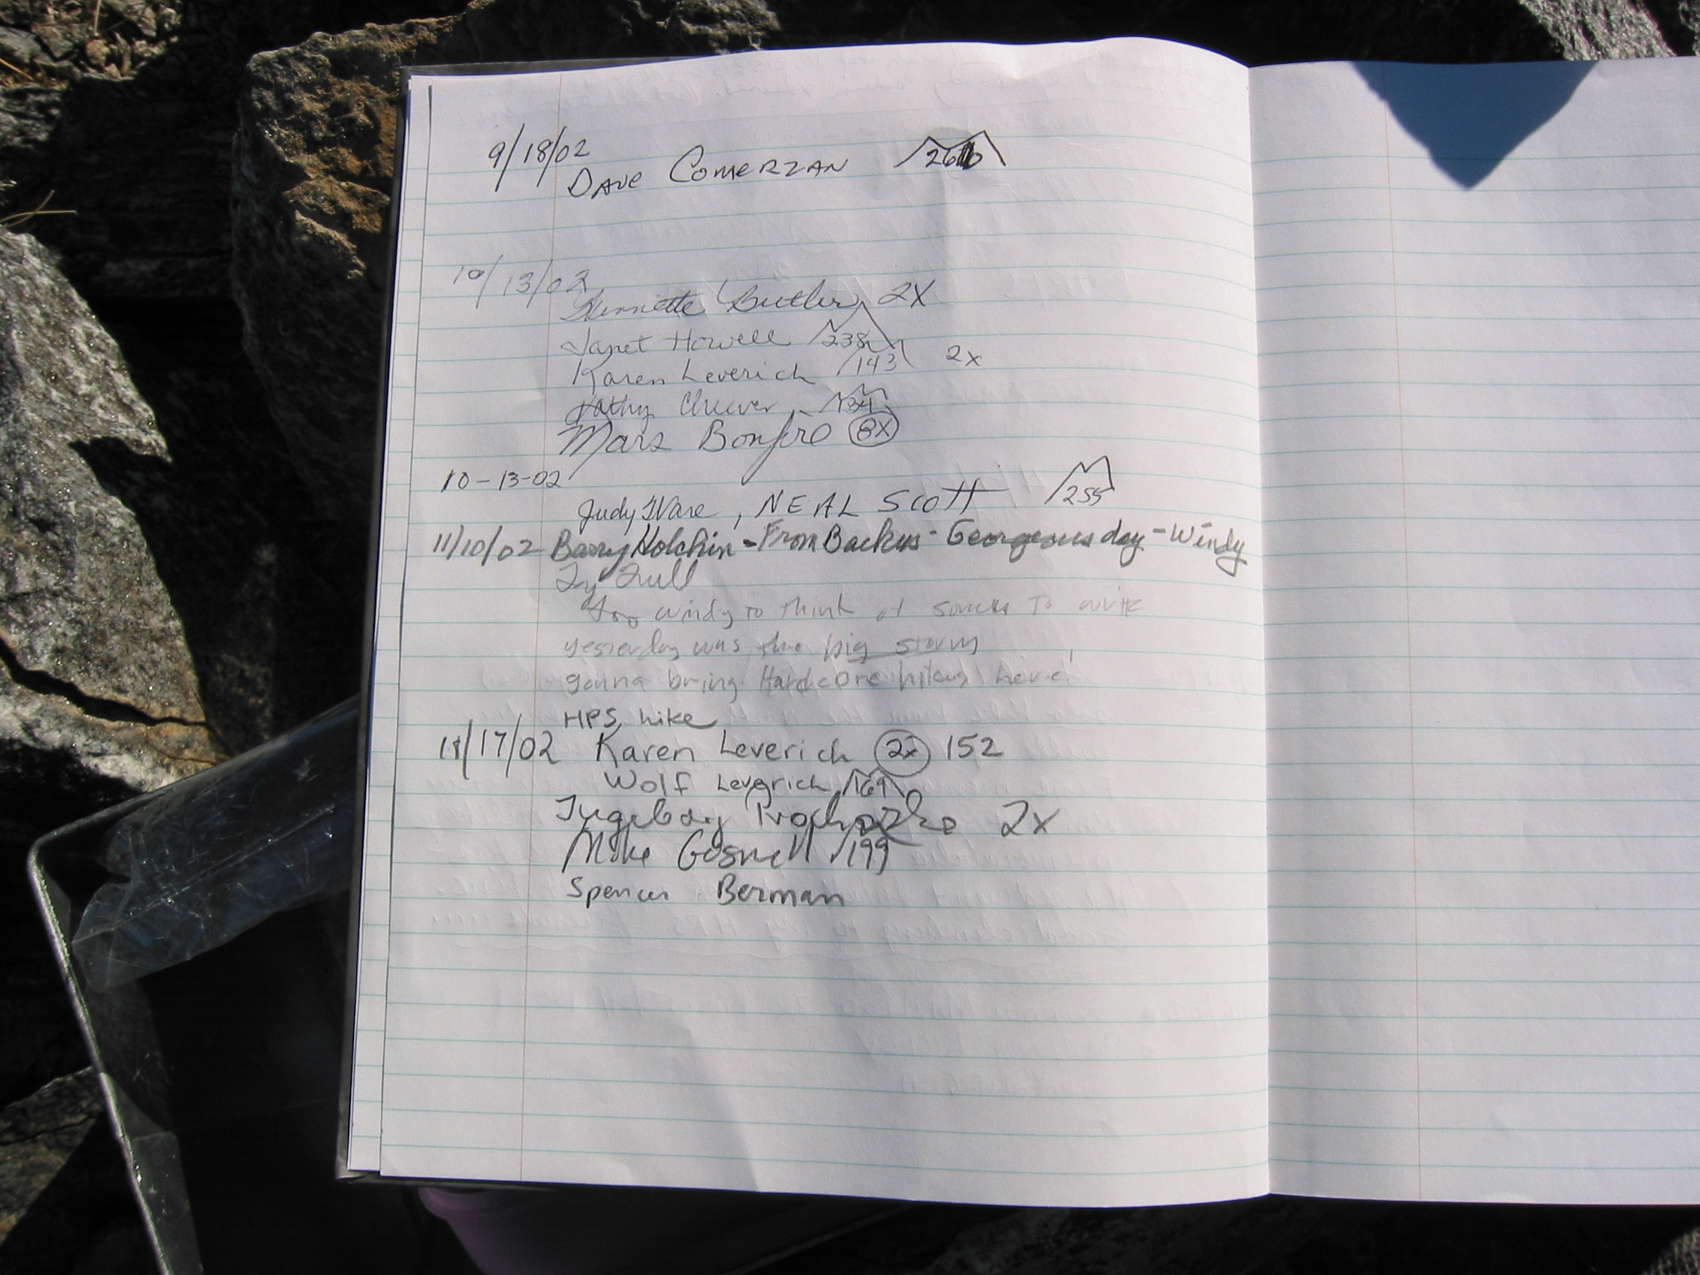 9/18/02
Dave Comerzan 260
10/13/02
Henriette Butler 2X
Janet Howell 238
Karen Leverich 143 2x
Kathy Cheever
Mars Bonfire 8X
10-13-02
Judy Ware, NEAL SCOTT 255
11/10/02 - Barry Holchin - From Backus - Georgeous day - Windy
Too windy to think of to write
yesterday was the big storm
gonna bring Hardcore here!
HPS hike
11/17/02 Karen Leverich 2x 152
Wolf Leverich 169
Ingeborg Prochazka 2x
Mike Gosnell 199
Spencer Berman